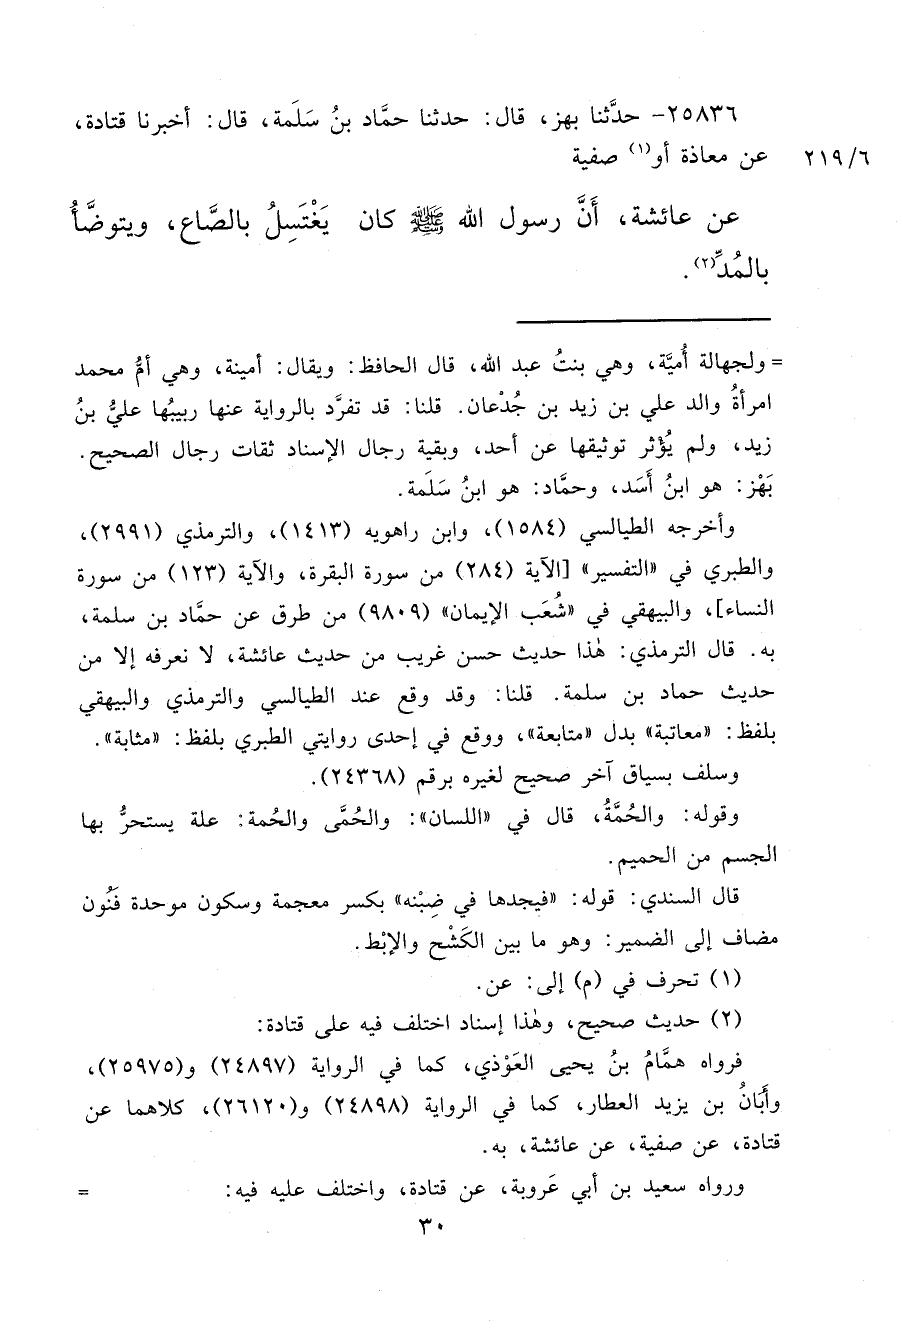 ٢٥٨٣٦- حدَّثنا بهز، قال: حدثنا حمَّاد بنُ سَلَمة، قال: أخبرنا قتادة،
عن معاذة أو(١) صفية ٢١٩/٦
عن عائشة، أَنَّ رسول الله ﷺ كان يَغْتَسِلُ بالصَّاع، ويتوضَّأُ
بالمُدِّ(٢).
= ولجهالة أُميَّة، وهي بنتُ عبد الله، قال الحافظ: ويقال: أمينة، وهي أمُّ محمد
امرأةُ والد علي بن زيد بن جُدْعان. قلنا: قد تفرَّد بالرواية عنها ربيبُها عليُّ بنُ
زيد، ولم يُؤْثر توثيقها عن أحد، وبقية رجال الإسناد ثقات رجال الصحيح.
بَهْز: هو ابنُ أَسَد، وحمَّاد: هو ابنُ سَلَمة.
وأخرجه الطيالسي (١٥٨٤)، وابن راهويه (١٤١٣)، والترمذي (٢٩٩١)،
والطبري في «التفسير» [الآية (٢٨٤) من سورة البقرة، والآية (١٢٣) من سورة
النساء]، والبيهقي في «شُعَب الإيمان» (٩٨٠٩) من طرق عن حمَّاد بن سلمة،
به. قال الترمذي: هٰذا حديث حسن غريب من حديث عائشة، لا نعرفه إلا من
حديث حماد بن سلمة. قلنا: وقد وقع عند الطيالسي والترمذي والبيهقي
بلفظ: «معاتبة» بدل «متابعة»، ووقع في إحدى روايتي الطبري بلفظ: «مثابة».
وسلف بسياق آخر صحيح لغيره برقم (٢٤٣٦٨).
وقوله: والحُمَّةُ، قال في «اللسان»: والحُمَّى والحُمة: علة يستحرُّ بها
الجسم من الحميم.
قال السندي: قوله: «فيجدها في ضِبْنه» بكسر معجمة وسكون موحدة فَنُون
مضاف إلى الضمير: وهو ما بين الكَشْح والإبْط.
(١) تحرف في (م) إلى: عن.
(٢) حديث صحيح، وهٰذا إسناد اختلف فيه على قتادة:
فرواه همَّامُ بنُ يحيى العَوْذي، كما في الرواية (٢٤٨٩٧) و(٢٥٩٧٥)،
وأَبَانُ بن يزيد العطار، كما في الرواية (٢٤٨٩٨) و(٢٦١٢٠)، كلاهما عن
قتادة، عن صفية، عن عائشة، به.
ورواه سعيد بن أبي عَروبة، عن قتادة، واختلف عليه فيه: =
٣٠